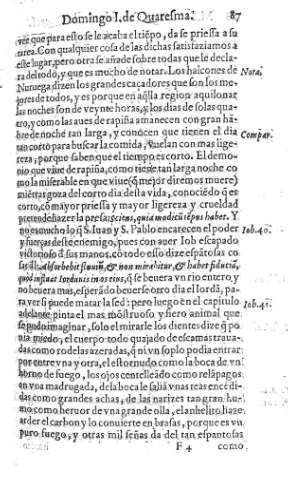 Domingo I. de Quaresma. 87
vez que para esto se le acaba el tiẽpo, da se priessa a su
tarea. Con qualquier cosa de las dichas satisfaziamos a
este lugar, pero otra se añade sobre todas que le decla-
ra del todo, y que es mucho de notar. Los halcones de Nota.
Nuruega dizen los grandes caçadores que son los me-
jores de todos, y es porque en aq̃lla region aquilonar
las noches son de veynte horas, y los dias de solas qua-
tro, y como las aues de rapiña amanecen con gran hã-
bre de noche tan larga, y conocen que tienen el dia Compar.
tan corto para buscar la comida, vuelan con mas lige-
reza, porque saben que el tiempo es corto. El demo-
nio que viue de rapiña, como tiene tan larga noche co
mo la miserable en que viue (q̃ mejor diremos muere)
miẽtras goza del corto dia desta vida, conociẽdo q̃ es
corto, cõ mayor priessa y mayor ligereza y crueldad
pretende hazer la presa: sciens, quia modicũ tẽpus habet. Y
no es mucho lo q̃ S. Iuan y S. Pablo encarecen el poder Iob. 40.
y fuerças deste enemigo, pues con auer Iob escapado
victorioso d̃ sus manos, cõ todo esso dize espãtosas co
sas d̃l. Absorbebit fluuiũ, & non mirabitur, & habet fiduciã,
quòd influat Iordanis in os eius, q̃ se beuera vn rio entero, y
no beuera mas, esperãdo beuerse otro dia el Iordã, pa-
ra ver si puede matar la sed: pero luego en el capitulo Iob. 41.
adelante pinta el mas mõstruoso y fiero animal que
se pudo imaginar, solo el mirarle los dientes dize q̃ po
nia miedo, el cuerpo todo quajado de escamas traua-
das como rodelas azeradas, q̃ ni vn soplo podia entrar
por entre vna y otra, el estornudo como la boca de vn
horno de fuego, los ojos centelleãdo como relãpagos
en vna madrugada, de la boca le saliã vnas teas encẽdi-
das como grandes achas, de las narizes tan gran hu-
mo como heruor de vna grande olla, el anhelito haze
arder el carbon y lo conuierte en brasas, porque es vn
puro fuego, y otras mil señas da del tan espantosas
F 4 como